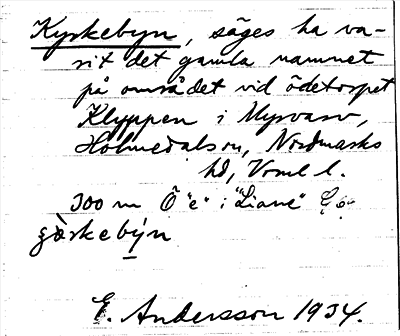 Kyrkebyn, säges ha va-
rit det gamla namnet
på området vid ödetorpet
Klyppen i Myrvarv,
Holmedalson, Nordmarks
hd, Vrml l.
300 m Ö "e" i "Liane"
E. Andersson 1934.